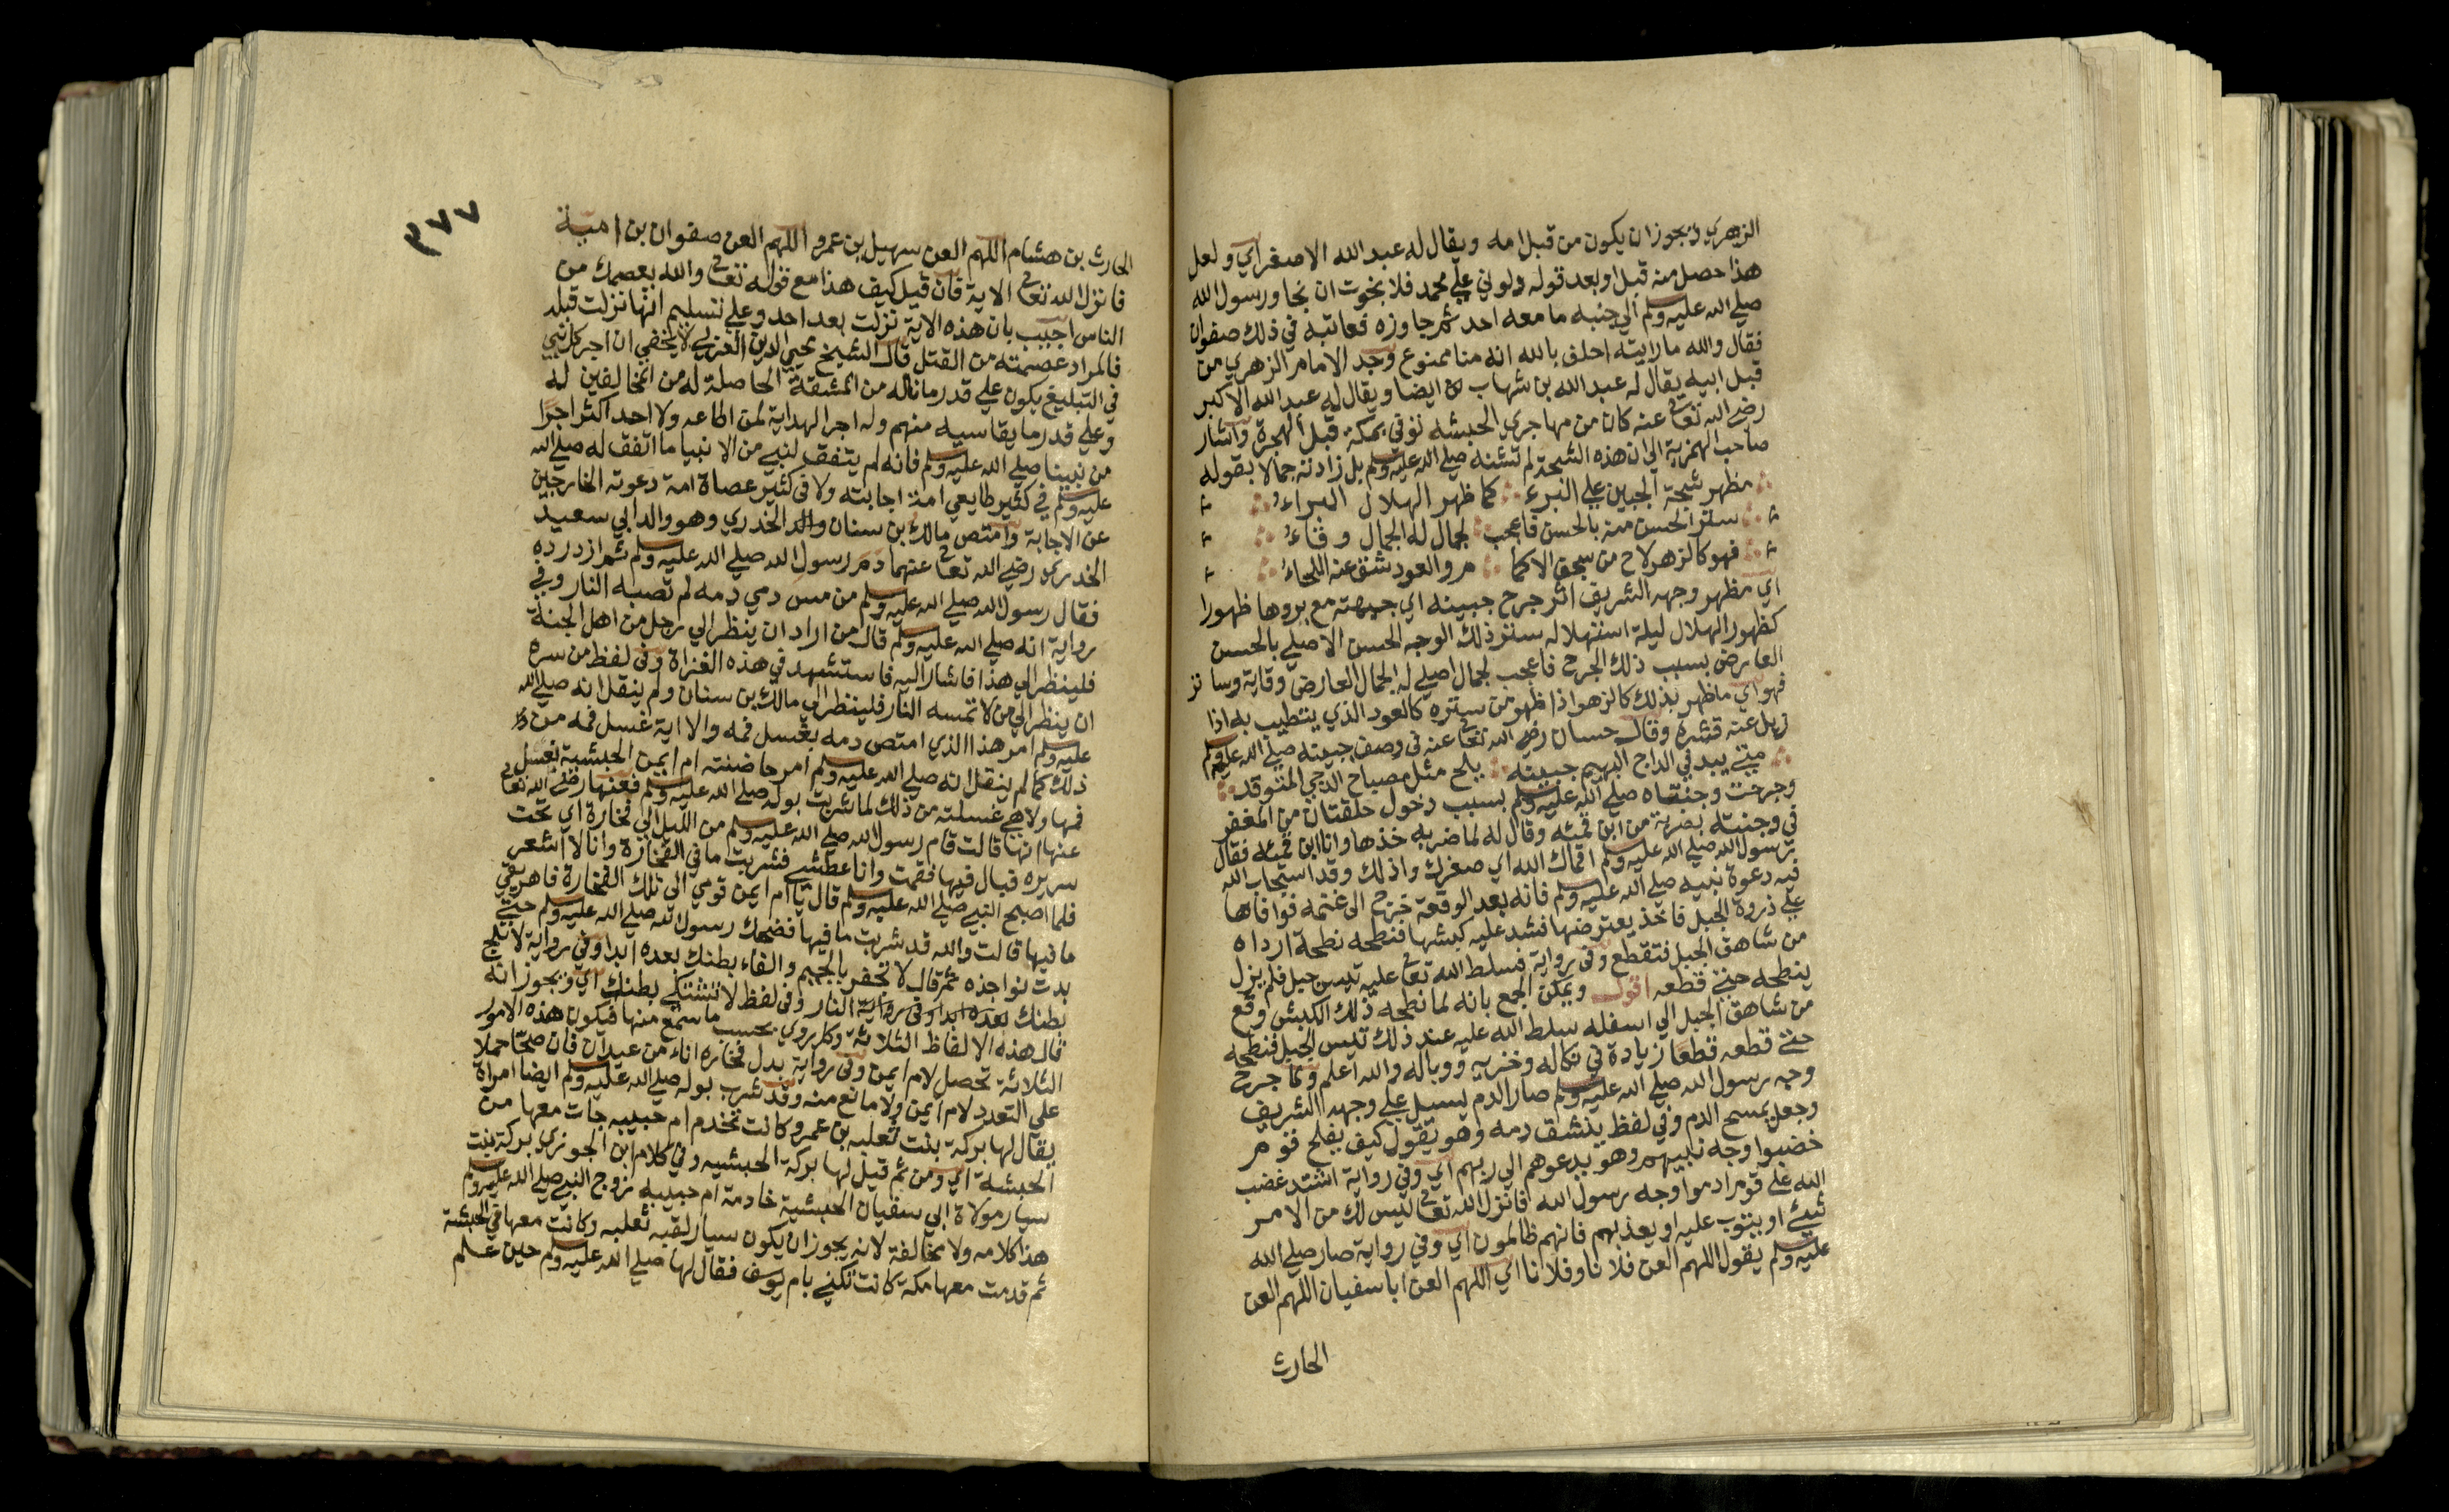 الزهري ويجوز ان يكون من قبل امه ويقال له عبد الله الاصغر اي ولعل
هذا حصل منه قبل او بعد قوله دلوني علي محمد فلا نجوت ان نجا ورسول الله
صلي الله عليه وسلم الي جنبه ما معه احد ثم جاوزه فعاتبه في ذلك صفوان
فقال والله ما رايته احلف بالله انه منا ممنوع وجد الامام الزهري من
قبل ابيه يقال له عبد الله بن شهاب ايضا ويقال له عبد الله الاكبر
رضي الله تعالي عنه كان من مهاجري الحبشه توفي بمكة قبل الهجرة واشار
صاحب الهمزية الي ان هذه الشجة لم تشنه صلي الله عليه وسلم بل زادته جمالا بقوله
مظهر شجة الجبين علي البرء كما ظهر الهلال البراء
ستر الحسن منه بالحسن فاعجب لجمال له الجمال وقاء
فهو كالزهر لاح من سجف الاكما م والعود شق عنه اللحاء
اي مظهر وجهه الشريف اثر جرح جبينه اي جبهته مع بروها ظهورا
كظهور الهلال ليلة استهلاله ستر ذلك الوجه الحسن الاصلي بالحسن
العارض بسبب ذلك الجرح فاعجب لجمال اصلي له الجمال العارض وقاية وساتر
فهو اي ما ظهر بذلك كالزهر اذا ظهر من ستره كالعود الذي يتطيب به اذا
ازيل عنه قشره وقال حسان رضي الله تعالي عنه في وصف جبينه صلي الله عليه وسلم
متي يبد في الداج البهيم جبينه يلح مثل مصباح الدجي المتوقد
وجرحت وجنتاه صلي الله عليه وسلم بسبب دخول حلقتان من المغفر
في وجنته بضربة من ابن قمئه وقال له لما ضربه خذها وانا ابن قمئه فقال
رسول الله صلي الله عليه وسلم اقماك الله اي صغرك واذلك وقد استجاب الله
فيه دعوة نبيه صلي الله عليه وسلم فانه بعد الوقعة خرج الي غنمه فوافاها
علي ذروة الجبل فاخذ يعترضها فشد عليه كبشها فنطحه نطحة ارداه
من شاهق الجبل فتقطع وفي رواية فسلط الله تعالي عليه تيس جبل فلم يزل
ينطحه حتي قطعه اقول ويمكن الجمع بانه لما نطحه ذلك الكبش وقع
من شاهق الجبل الي اسفله سلط الله عليه عند ذلك تيس الجبل فنطحه
حتي قطعه قطعا زيادة في نكاله وخزيه ووباله والله اعلم ولما جرح
وجه رسول الله صلي الله عليه وسلم صار الدم يسيل علي وجهه الشريف
وجعل يمسح الدم وفي لفظ ينشف دمه وهو يقول كيف يفلح قوم
خضبوا وجه نبيهم وهو يدعوهم الي ربهم اي وفي رواية اشتد غضب
الله علي قوم ادموا وجه رسول الله فانزل الله تعالي ليس لك من الامر
شئ او يتوب عليه او يعذبهم فانهم ظالمون اي وفي رواية صار صلي الله
عليه وسلم يقول اللهم العن فلانا وفلانا اي اللهم العن ابا سفيان اللهم العن
الحارث
٣٧٧
الحارث بن هشام اللهم العن سهيل بن عمرو اللهم العن صفوان بن امية
فانزل الله تعالي الاية فان قيل كيف هذا مع قوله تعالي والله يعصمك من
الناس اجيب بان هذه الاية نزلت بعد احد وعلي تسليم انها نزلت قبله
فالمراد عصمته من القتل قال الشيخ محيي الدين العزبي لا يخفي ان اجر كل نبي
في التبليغ يكون علي قدر ما ناله من المشقة الحاصلة له من المخالفين له
وعلي قدر ما يقاسيه منهم وله اجر الهداية لمن اطاعه ولا احد اكثر اجرا
من نبينا صلي الله عليه وسلم فانه لم يتفق لنبي من الانبيا ما اتفق له صلي الله
عليه وسلم في كثير طايعي امة اجابته ولا في كثير عصاة امة دعوته الخارجين
عن الاجابة وامتص مالك بن سنان والد الخدري وهو والد ابي سعيد
الخدري رضي الله تعالي عنهما دم رسول الله صلي الله عليه وسلم ثم ازدرده
فقال رسول الله صلي الله عليه وسلم من مس دمي دمه لم تصبه النار وفي
رواية انه صلي الله عليه وسلم قال من اراد ان ينظر الي رجل من اهل الجنة
فلينظر الي هذا فاشار اليه فاستشهد في هذه الغزاة وفي لفظ من سره
ان ينظر الي من لا تمسه النار فلينظر الي مالك بن سنان ولم ينقل انه صلي الله
عليه وسلم امر هذا الذي امتص دمه بغسل فمه والا اية غسل فمه من
ذلك كما لم ينقل انه صلي الله عليه وسلم امر حاضنته ام ايمن الحبشية بغسل
فمها ولا هي غسلته من ذلك لما شربت بوله صلي الله عليه وسلم فعنها رضي الله تعالي
عنها انها قالت قام رسول الله صلي الله عليه وسلم من الليل الي فخارة اي تحت
سريره فبال فيها فقمت وانا عطشي فشربت ما في الفخارة وانا لا اشعر
فلما اصبح النبي صلي الله عليه وسلم قال يا ام ايمن قومي الي تلك الفخارة فاهريقي
ما فيها قالت والله قد شربت ما فيها فضحك رسول الله صلي الله عليه وسلم حتي
بدت نواجذه ثم قال لا تحفر بالجيم والفاء بطنك بعده ابدا وفي رواية لا تلج
بطنك بعده ابدا وفي رواية النار وفي لفظ لا تشتكي بطنك اي ويجوز انه
قال هذه الالفاظ الثلاثة وكل روي بحسب ما سمع منها فيكون هذه الامور
الثلاثة تحصل لام ايمن وفي رواية بدل فخاره اناء من عيدان فان صحا حملا
علي التعدد لام ايمن ولا مانع منه وقد شرب بوله صلي الله عليه وسلم ايضا امراة
يقال لها بركة بنت ثعلبه بن عمرو وكانت تخدم ام حبيبه جات معها من
الحبشة اي ومن ثم قيل لها بركة الحبشيه وفي كلام ابن الجوزي بركة بنت
سيار مولاة ابي سفيان الحبشية خادمة ام حبيبه زوج النبي صلي الله عليه وسلم
هذا كلامه ولا مخالفة لانه يجوز ان يكون سيار لقبه ثعلبه وكانت معها في الحبشة
ثم قدمت معها مكة كانت تكني بام يوسف فقال لها صلي الله عليه وسلم حين علم